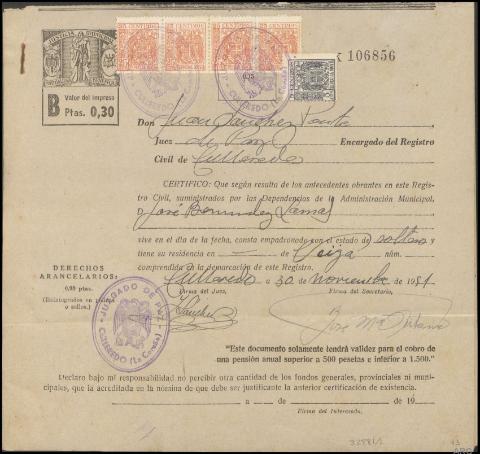 JUSTICIA MUNICIPAL
B Valor del impreso
Ptas. 0,30
106856
Don Juan Sanchez
Juez de Paz Encargado del Registro
Civil de Culleredo
CERTIFICO: Que según resulta de los antecedentes obrantes en este Regis-
tro Civil, suministrados por las Dependencias de la Administración Municipal.
D. José Bermudez Lamas
vive en el día de la fecha, consta empadronado con el estado de soltero y
tiene su residencia en — de Veiga núm.
comprendida en la demarcación de este Registro.
Culleredo a 30 de noviembre de 1951
Firma del Juez, Firma del Secretario,
DERECHOS
ARANCELARIOS:
0,95 ptas.
(Reintegrados en pólizas
o sellos.)
JUZGADO DE PAZ
CULLEREDO (La Coruña)
J Sanchez
José Mª
"Este documento solamente tendrá validez para el cobro de
una pensión anual superior a 500 pesetas e inferior a 1.500."
Declaro bajo mi responsabilidad no percibir otra cantidad de los fondos generales, provinciales ni muni-
cipales, que la acreditada en la nómina de que debe ser justificante la anterior certificación de existencia.
a de de 19
Firma del Interesado,